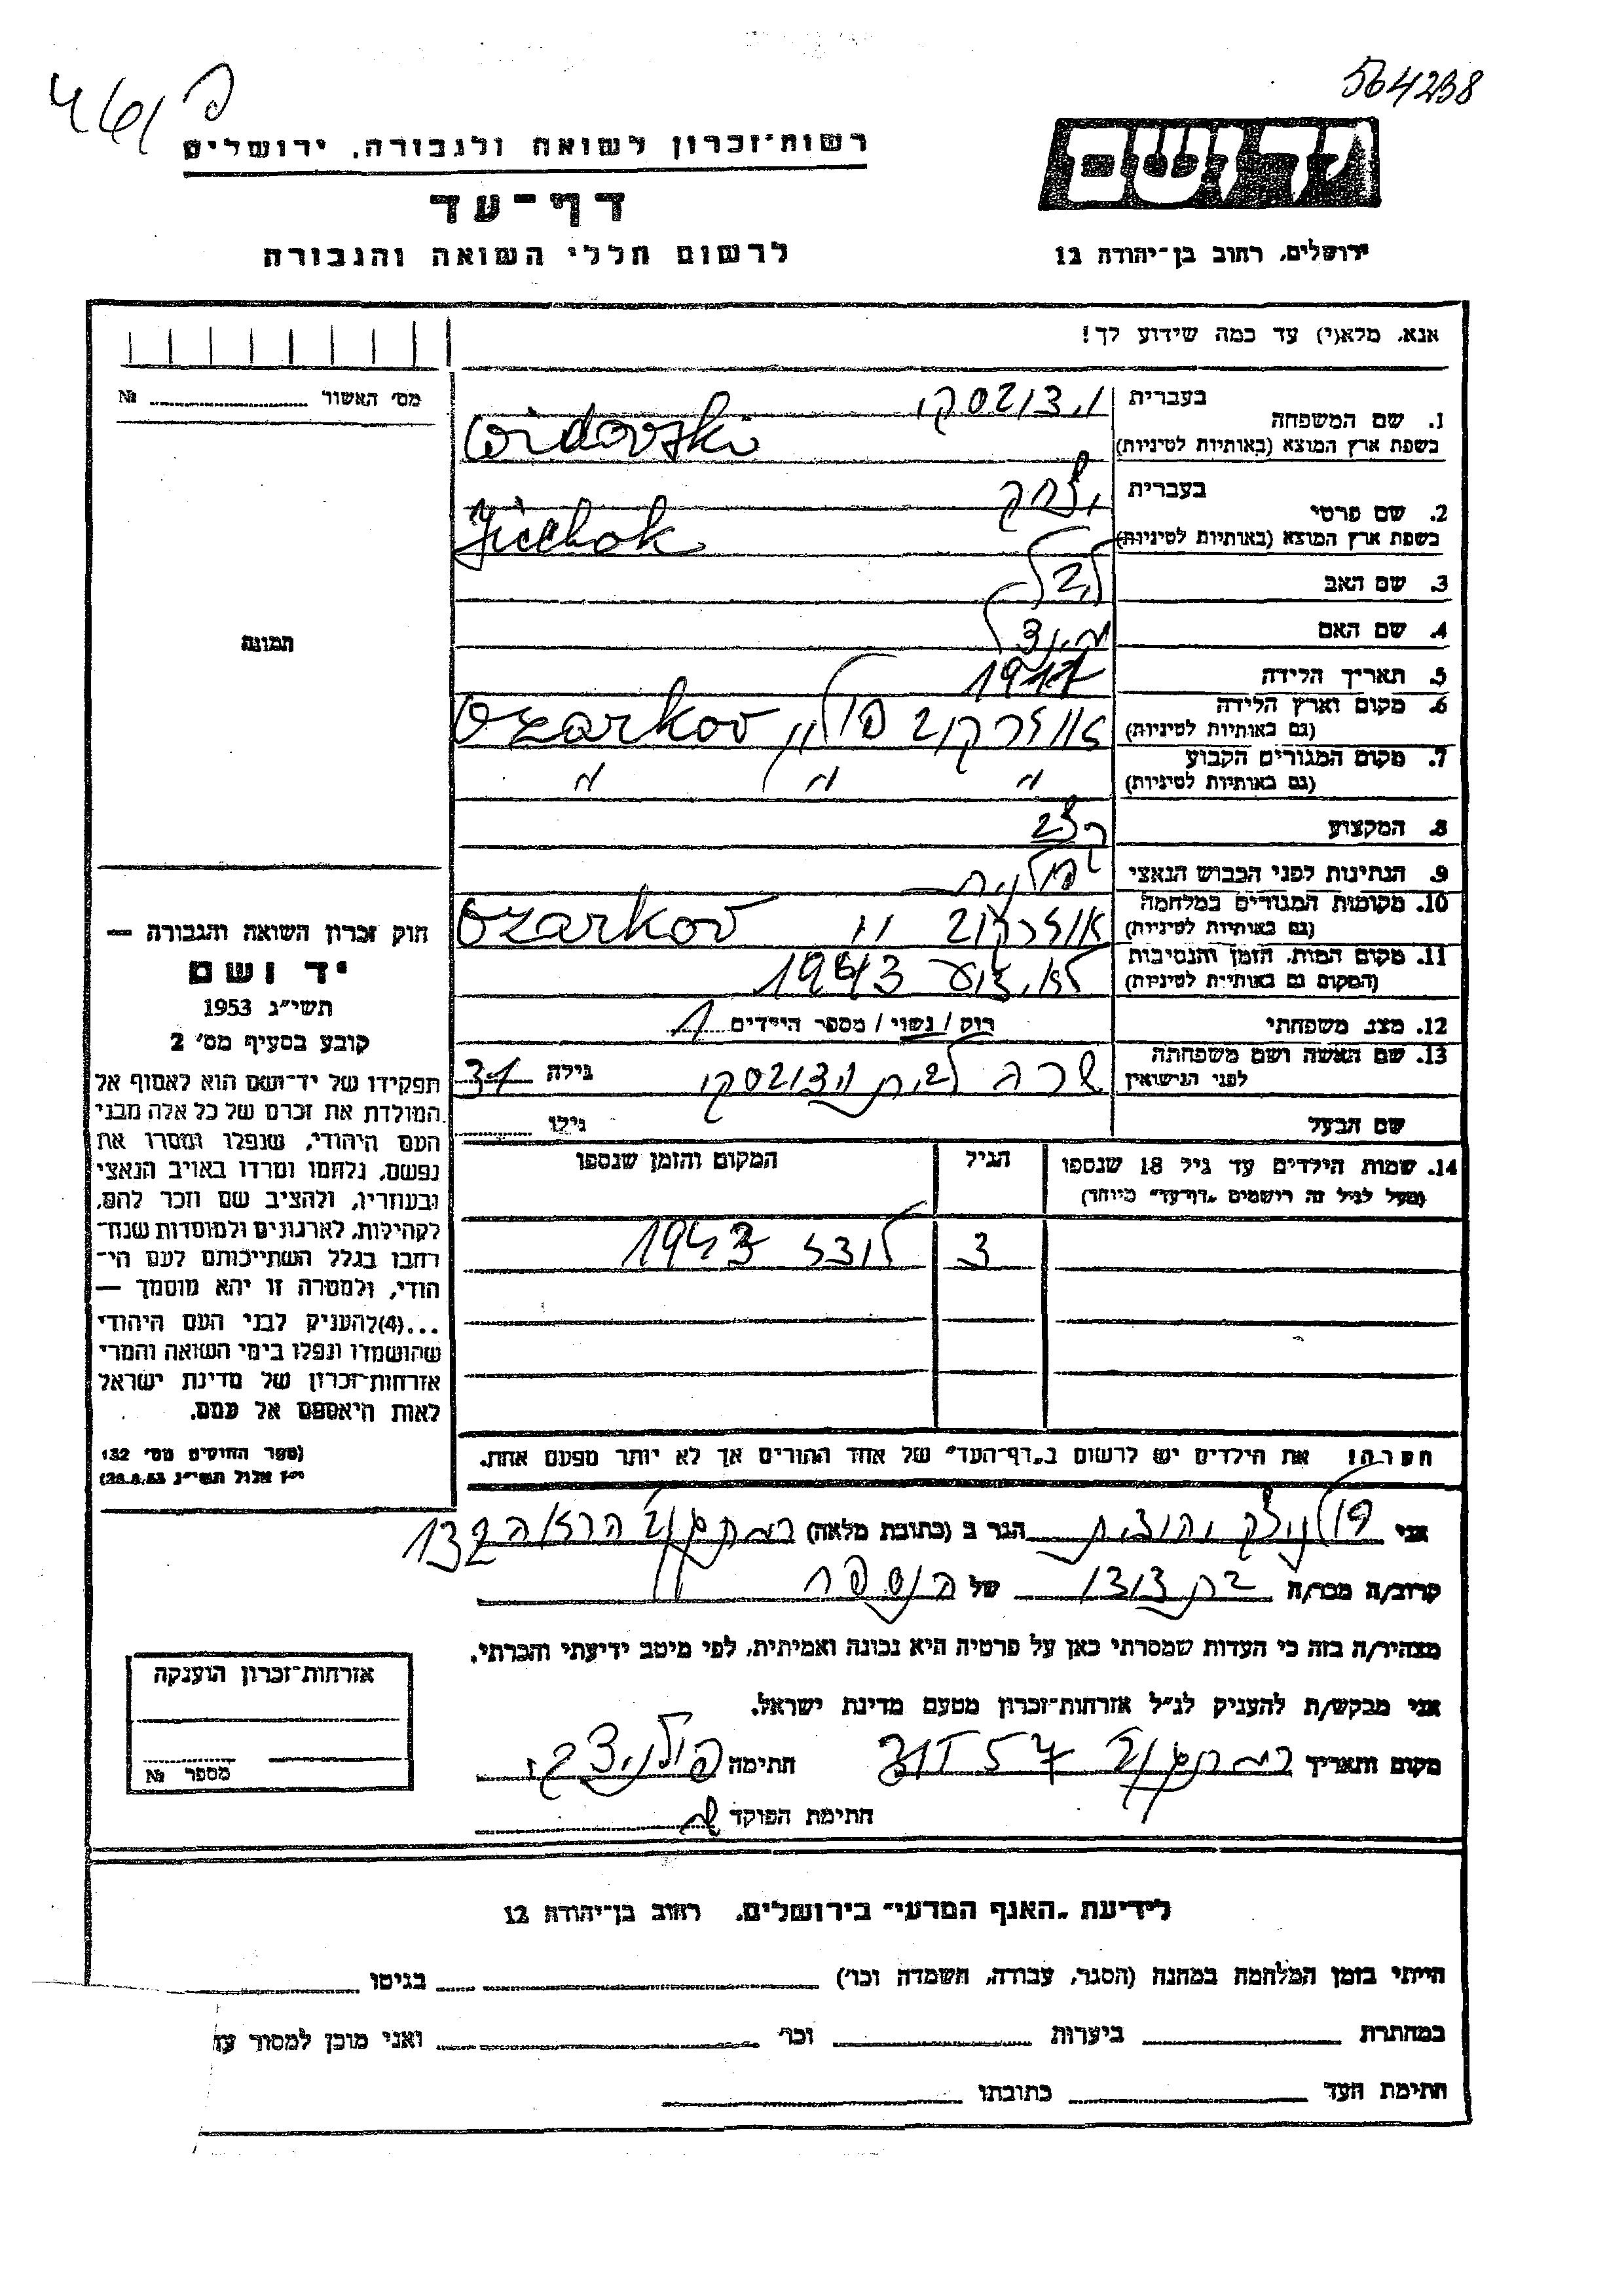 564238
461 פ
רשות־זכרון לשואה ולגבורה, ירושלים
ידושם
דף־עד
לרשום חללי השואה והגבורה
ירושלים, רחוב בן־יהודה 12
אנא, מלא(י) עד כמה שידוע לך!
מס׳ האשור № 
1. שם המשפחה
בעברית וידובסקי
בשפת ארץ המוצא (באותיות לטיניות) Widovski
2. שם פרטי
בעברית יצחק
בשפת ארץ המוצא (באותיות לטיניות)
תמונה
3. שם האב
4. שם האם
5. תאריך הלידה
6. מקום וארץ הלידה אוזרקוב פולין Ozarkov
(גם באותיות לטיניות)
7. מקום המגורים הקבוע " " "
(גם באותיות לטיניות)
8. המקצוע קצב
9. הנתינות לפני הכבוש הנאצי פולנית
10. מקומות המגורים במלחמה אוזרקוב Ozarkov
(גם באותיות לטיניות)
11. מקום המות, הזמן והנסיבות לא ידוע 1943
(המקום גם באותיות לטיניות)
12. מצב משפחתי רווק / נשוי / מספר הילדים 1
13. שם האשה ושם משפחתה שרה לבית וידובסקי גילה 31
לפני הנישואין
שם הבעל גילו
14. שמות הילדים עד גיל 18 שנספו הגיל המקום והזמן שנספו
(מעל לגיל זה רושמים „דף־עד״ מיוחד)
3 לודז 1943
חוק זכרון השואה והגבורה —
יד ושם
תשי״ג 1953
קובע בסעיף מס׳ 2
תפקידו של יד־ושם הוא לאסוף אל
המולדת את זכרם של כל אלה מבני
העם היהודי, שנפלו ומסרו את
נפשם, נלחמו ומרדו באויב הנאצי
ובעוזריו, ולהציב שם וזכר להם,
לקהילות, לארגונים ולמוסדות שנח־
רבו בגלל השתייכותם לעם הי־
הודי, ולמטרה זו יהא מוסמך —
...(4) להעניק לבני העם היהודי
שהושמדו ונפלו בימי השואה והמרי
אזרחות־זכרון של מדינת ישראל
לאות היאספם אל עמם.
(ספר החוקים מס׳ 132
י״ז אלול תשי״ג 28.8.53)
הערה! את הילדים יש לרשום ב„דף־העד״ של אחד ההורים אך לא יותר מפעם אחת.
אני יהודית הגר ב (כתובת מלאה) הרואה 132
קרוב/ה מכר/ה בת דודו של הנספה
מצהיר/ה בזה כי העדות שמסרתי כאן על פרטיה היא נכונה ואמיתית, לפי מיטב ידיעתי והכרתי.
אני מבקש/ת להעניק לנ״ל אזרחות־זכרון מטעם מדינת ישראל.
מקום ותאריך חתימה
חתימת הפוקד
אזרחות־זכרון הוענקה
מספר №
לידיעת „האגף המדעי״ בירושלים, רחוב בן־יהודה 12
הייתי בזמן המלחמה במחנה (הסגר, עבודה, השמדה וכו׳) בגיטו
במחתרת ביערות וכו׳ ואני מוכן למסור עד
חתימת העד כתובתו